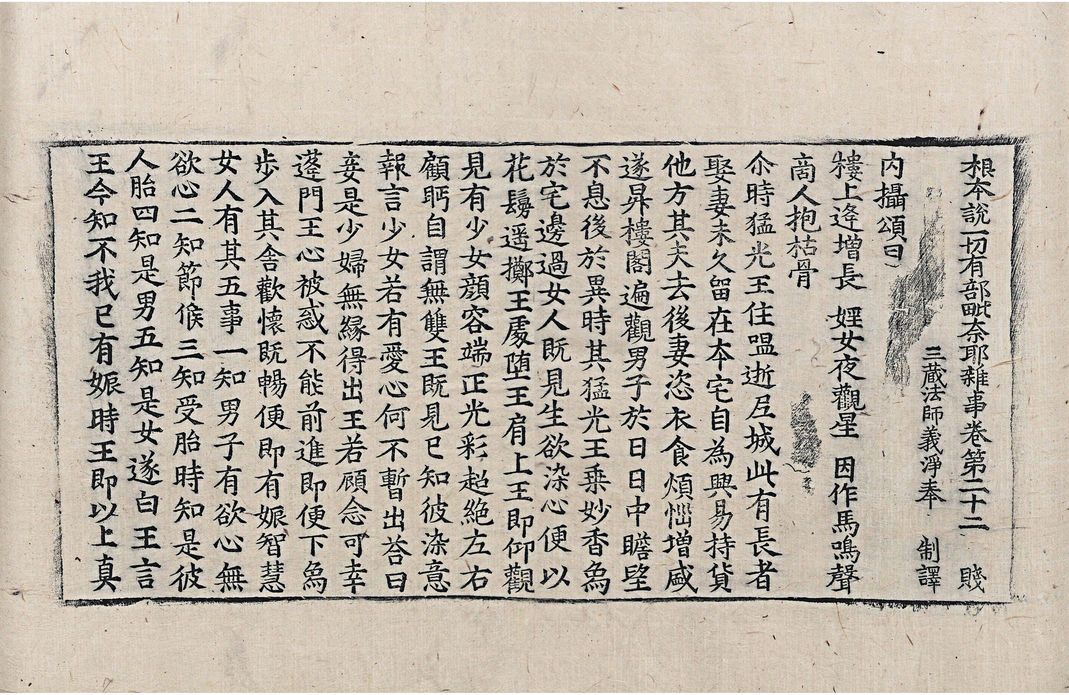 根本說一切有部毗奈耶雜事卷第二十二　賤
三藏法師義淨奉　制譯
內攝頌曰
樓上逄增長　婬女夜觀星　因作馬鳴聲
商人抱枯骨
尒時猛光王住嗢逝尼城此有長者
娶妻未久留在本宅自為興易持貨
他方其夫去後妻恣衣食煩惱增盛
遂昇樓閣遍觀男子於日日中瞻望
不息後於異時其猛光王乘妙香象
於宅邊過女人既見生欲染心便以
花鬘遥擲王處堕王肩上王即仰觀
見有少女顔容端正光彩超絶左右
顧眄自謂無雙王既見已知彼染意
報言少女若有愛心何不暫出荅曰
妾是少婦無緣得出王若顧念可幸
蓬門王心被惑不能前進即便下象
步入其舍歡懷既暢便即有娠智慧
女人有其五事一知男子有欲心無
欲心二知節候三知受胎時知是彼
人胎四知是男五知是女遂白王言
王今知不我已有娠時王即以上真